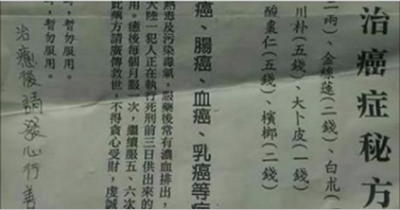 治癌症秘方
二兩）、金線蓮（二錢）、白朮（
川朴（五錢）、大卜皮（一錢）
酸棗仁（五錢）、檳榔（二錢）
癌、腸癌、血癌、乳癌等
熱患及污染毒氣，服藥後常有濃血排出，
大陸一犯人正在執行死刑前三日供出來的
用。癒後每個月服一次，繼續服五、六次
此藥方請廣傳救世，不得貪心受財，虔誠
，暫勿服用。
，暫勿服用。
治癒後請發心行善